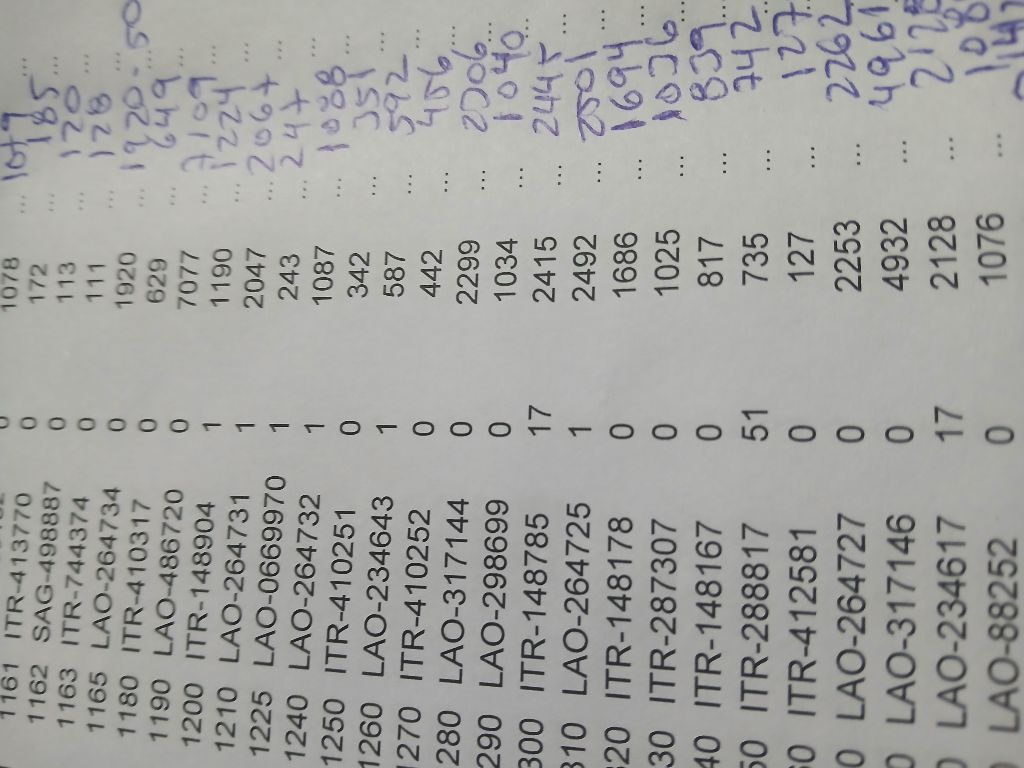 0 1078 ... 1079 ...
1161 ITR-413770 0 172 ... 185 ...
1162 SAG-498887 0 113 ... 120 ...
1163 ITR-744374 0 111 ... 128 ...
1165 LAO-264734 0 1920 ... 1920-50
1180 ITR-410317 0 629 ... 649 ...
1190 LAO-486720 0 7077 ... 7109 ...
1200 ITR-148904 1 1190 ... 1224 ...
1210 LAO-264731 1 2047 ... 2067 ...
1225 LAO-0669970 1 243 ... 247 ...
1240 LAO-264732 1 1087 ... 1088 ...
1250 ITR-410251 0 342 ... 351 ...
1260 LAO-234643 1 587 ... 592 ...
1270 ITR-410252 0 442 ... 456 ...
280 LAO-317144 0 2299 ... 2306 ...
290 LAO-298699 0 1034 ... 1040 ...
300 ITR-148785 17 2415 ... 2445 ...
310 LAO-264725 1 2492 ... 2501 ...
20 ITR-148178 0 1686 ... 1694 ...
30 ITR-287307 0 1025 ... 1036 ...
40 ITR-148167 0 817 ... 839 ...
50 ITR-288817 51 735 ... 742 ...
0 ITR-412581 0 127 ... 127
0 LAO-264727 0 2253 ... 2262
0 LAO-317146 0 4932 ... 4961
0 LAO-234617 17 2128 ...
LAO-88252 0 1076 ...